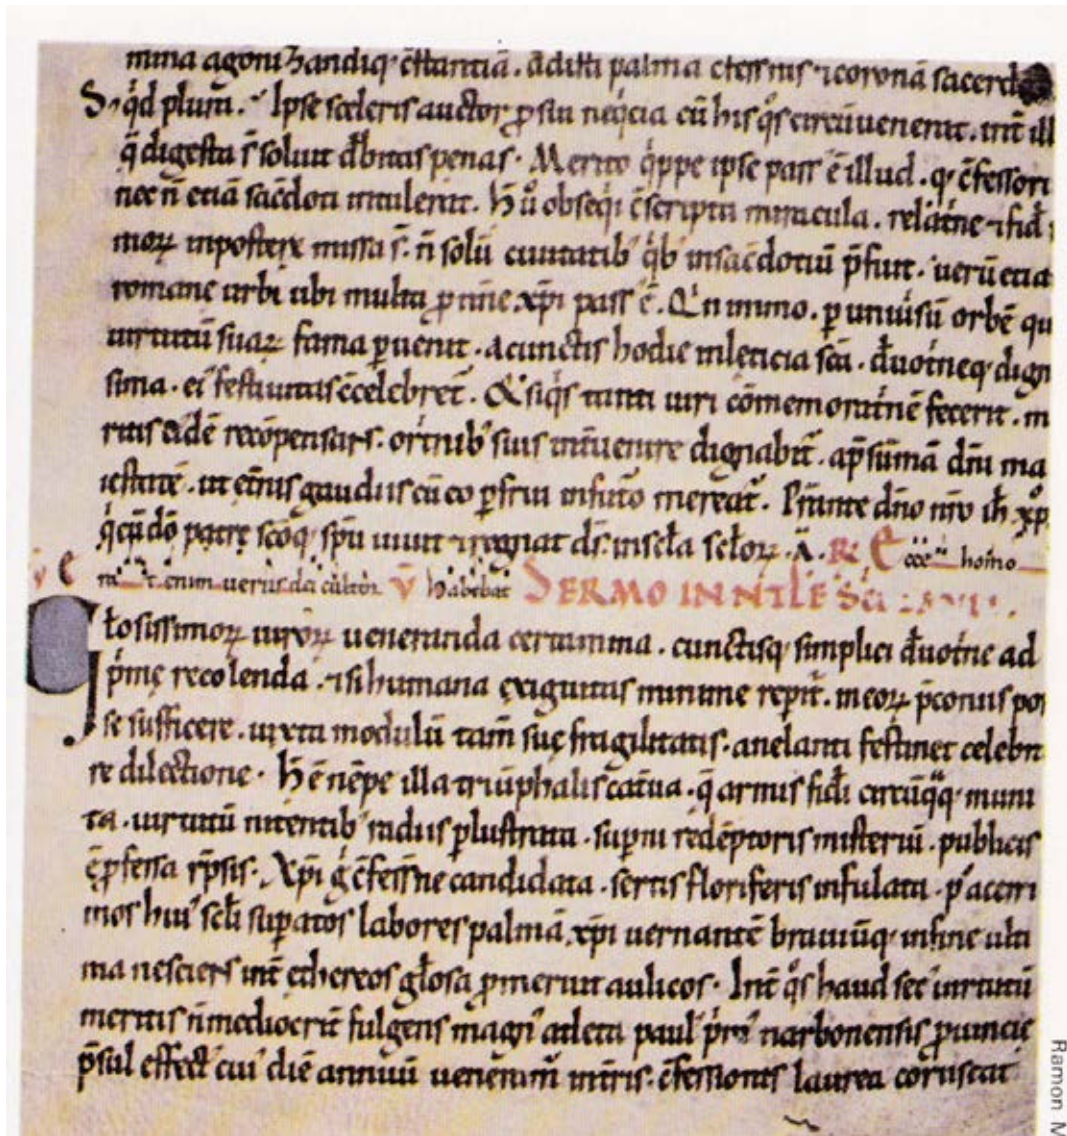 mina agoni handiq; c̄stantiā. adisti palma c̄fessus ⁊ coronā sacerd
S; q̇d plura. Ipse sceleris auctor ꝓ sui neq̇cia cū his q̇s circūuenerat. int̄ ill
q̄ digesta s̄ soluit d̄bitas penas. Merito q̇ppe ipse pass' ē illud. q; c̄fessori
nec n̄ etiā sac̄doti intulerat. h̄ u̇o obseq̇i c̄scripta miracula. relat̄ne ⁊ fid
moꝝ in postere missa s̄. n̄ solū ciuitatib' q̇b' in sac̄dotiū p̄fuit. uerū etia
romane urbi ubi multa ꝓ n̄ne xp̄i pass' ē. Q̇n immo. ꝑ uniu̇sū orbē qu
uirtutū suaꝝ fama ꝑuenit. a cunctis hodie in leticia sc̄a. d̄uot̄neq; dign
sima. ei' festiuitas c̄celebret̄. & siq̇s tanti uiri cōmemorat̄nē fecerit. m
ritis eidē recōpensans. or̄nib' suis int̄uenire dignabit̄. ap̄ sūmā dn̄i ma
iestatē. ut et̄nis gaudiis cū eo ꝑfrui in futo mereat̄. P̄stante dn̄o nr̄o ih̄u xp̄o
q̇ cū dō patre sc̄oq; sp̄u uiuit ⁊ regnat ds̄ in sc̄la sc̄loꝝ. A. R̄ Ecce homo
enim uerus dei cultor v̄ habebat SERMO IN NATALE Sci
G l̄osissimoꝝ uiroꝝ ueneranda certamina. cunctisq; simplici d̄uot̄ne ad
p̄me recolenda. ⁊ si humana exiguitas minime repit̄. meoꝝ p̄coniis pos
se sufficere. iuxta modulū tam̄ sue fragilitatis. anelanti festinet celebra
re dilectione. h̄ ē nēpe illa triūphalis cat̄ua. q̄ armis fidi circūq̄q; muni
ta. uirtutū nitentib' radiis ꝑlustrata. suꝑni redēptoris misteriū. publicis
ē ꝓfessa rīpsis. Xp̄i g̊ c̄fess̄ne candidata. sertis floriferis infulata. p' acerri
mos hui' sc̄li suꝑatos labores palmā xp̄i uernantē brauiūq; in fine ulti
ma nesciens int̄ ethereos gl̄osa ꝓmeruit aulicos. Int̄ q̇s haud sec' uirtutū
meritis n̄ mediocrit̄ fulgens magn' atleta paul' p̄m' narbonensis ꝓuincie
p̄sul effect' cui' diē annuū ueneram̄ int̄ris. c̄fessionis laurea coruscat
Ramon M